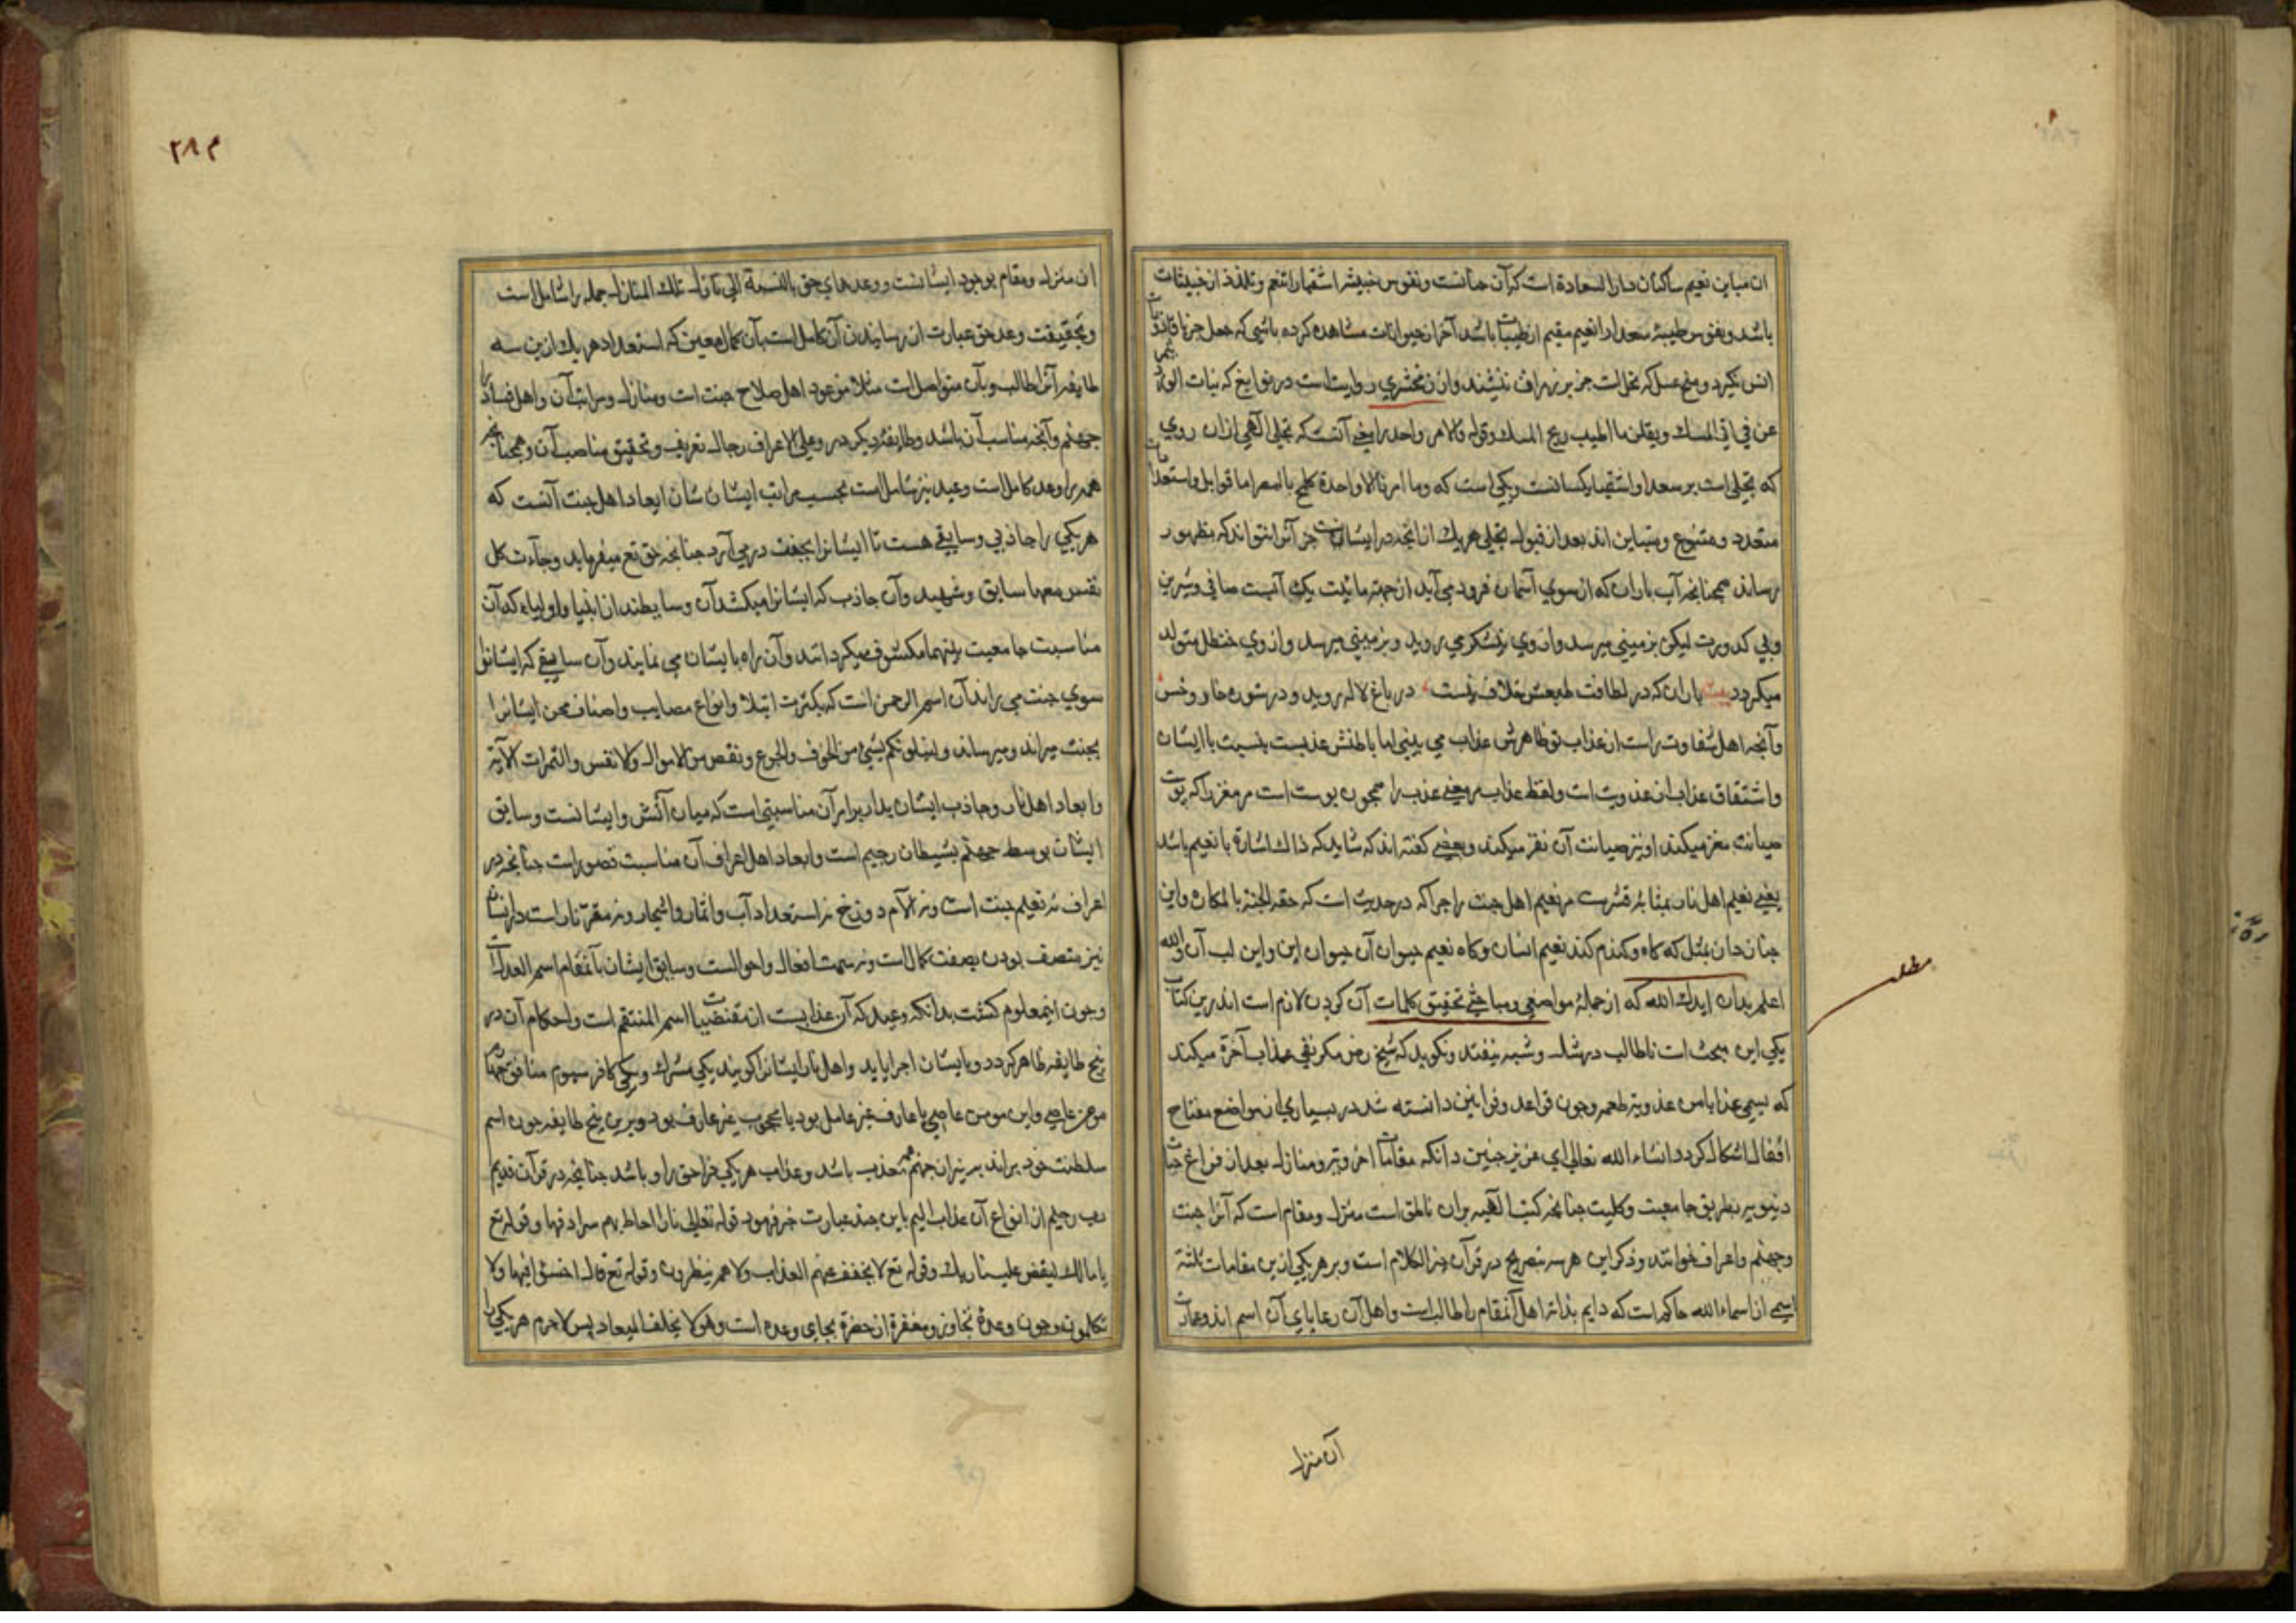 ان مباین نعیم ساکنان دار السعادة است که آن جنانست ونفوس خبیثه اشقیا را تنعم وتلذذ از خبیثات
باشد ونفوس طیبهٔ سعدا را نعیم مقیم از طیبات باشد آخر از حیوانات مشاهده کرده باشی که جعل جز با قاذورات
انس نگیرد ومنج عسل که نحل است جز بر زهرات ننشیند واز زمخشری روایت است در نوابغ که بنات الورد
عن فی المسک ویقلن ما اطیب ریح المسک وقوله فالامر واحد را یعنی آنست که تجلی الهی ازان روی
که تجلی است بر سعدا واشقیا یکسانست ویکی است که وما امرنا الا واحدة کلمح بالبصر اما قوابل واستعدادات
متعدد ومتنوع ومتباین اند بعد از قبول تجلی هر یک از آنچه در ایشانست جز آنرا نتواند که بظهور
رساند همچنانچه آب باران که از سوی آسمان فرود می آید از جهة مائیت یک آبست صافی وشیرین
وبی کدورت لیکن بزمینی میرسد واز وی نیشکر می روید وبزمینی میرسد واز وی حنظل متولد
میکردد بیت باران که در لطافت طبعش خلاف نیست در باغ لاله روید ودر شوره خار وخس
وآنچه اهل شقاوت راست از عذاب تو ظاهرش عذاب می بینی اما باطنش عذبست بنسبت با ایشان
واشتقاق عذاب از عذوبت است ولفظ عذاب مر معنی عذب را همچون پوست است مر مغز را که پوست
صیانت مغز میکند او نیز صیانت آن نغز میکند وبعضی گفته اند که شاید که ذاک اشارة با نعیم باشد
یعنی نعیم اهل نار بمثابهٔ قشرست مر نعیم اهل جنت را چرا که در حدیث است که حفت الجنة بالمکاره واین
چنان دان بمثل که کاه وکندم کند نعیم انسان وکاه نعیم حیوان آن حیوان این واین لب آن والله
اعلم بدان ایدک الله که از جملهٔ مواضعی ومباحثی تحقیق کلمات آن کردن لازم است اندرین کتاب
یکی این مبحث است تا طالب در شک وشبه نیفتد ونکوید که شیخ رض مکر نفی عذاب آخرة میکند
که یسمی عذابا من عذوبة طعمه وچون قواعد وقوانین دانسته شد در بسیاری از مواضع مفتاح
اقفال اشکال کردد انشاء الله تعالی ای عزیز چنین دانکه مقامات اخرویه ومنازل بعد از فراغ حیات
دنیویه بطریق جامعیت وکلیت چنانچه کتب الهیه بران ناطق است منزل ومقام است که آنرا جنت
وجهنم واعراف خوانند وذکر این هر سه بتصریح در قرآن خیر الکلام است وبر هر یکی ازین مقامات ثلثه
اسمی از اسماء الله حاکم است که دایم بذاته اهل آنمقام را طالب است واهل آن رعایای آن اسم اند وعمارت
آن منزل
مطلب
۲۸۴
ان منزل ومقام بوجود ایشانست ووعدهای حق بالنسبة الی نازل تلک المنازل جمله را شاملست
وتحقیقت وعد حق عبارت از رسانیدن آن کاملست بآن کمال معین که استعداد هر یک ازین سه
طایفه آنرا طالب وبآن متواصل است مثلا موعود اهل صلاح جنت است ومنازل ومراتب آن واهل فساد را
جهنم وآنچه مناسب آن باشد وطایفهٔ دیکر در وعلی الاعراف رجال تعریف وتحقیق مناصب آن وهمچنانچه
همه را وعد کاملست وعید نیز شاملست بحسب مراتب ایشان شان ایعاد اهل جنت آنست که
هر یکی را جاذبی وسایقی هست تا ایشانرا بجنت در می آرد چنانچه حق تع میفرماید وجاءت کل
نفس معها سایق وشهید وآن جاذب که ایشانرا میکشد آن وسایطند از انبیا واولیاء که آن
مناسبت جامعیت بینهما مکشوف میکردانند وآن راه بایشان می نمایند وآن سایقی که ایشانرا
سوی جنت می راند آن اسم الرحمن است که بکثرت ابتلا وانواع مصایب واصناف محن ایشانرا
بجنت میراند ومیرساند ولنبلونکم بشیء من الخوف والجوع ونقص من الاموال والانفس والثمرات الآیة
وایعاد اهل نار وجاذب ایشان بدار بوار آن مناسبتی است که میان آتش وایشانست وسایق
ایشان بوسط جهنم بشیطان رجیم است وایعاد اهل اعراف آن مناسبت قصورست چنانچه در
اعراف نه نعیم جنت است ونه آلام دوزخ نه استعداد آب واثمار واشجار ونه مقر نارست دار ایشان
نیز متصف بودن بصفت کمال است ونه سمت افعال واحوالست وسایق ایشان بآنمقام اسم العدل است
وچون اینمعلوم کشت بدانکه وعید که آن عذابیست از مقتضیات اسم المنتقم است واحکام آن در
پنج طایفه ظاهر کردد وبایشان اجرا یابد واهل نار ایشانرا کویند یکی مشرک ویکی کافر سیوم منافق چهارم
مومن عاصی واین مومن عاصی یا عارف غیر عامل بود یا محجوب غیر عارف بود وبرین پنج طایفه چون اسم
سلطنت خود براند بر نیران جهنم معذب باشد وعذاب هر یکی فراخور او باشد چنانچه در قرآن قدیم
رب رحیم از انواع آن عذاب الیم باین چند عبارت خبر فرمود قوله تعالی نارا احاط بهم سرادقها وقوله تع
یا مالک لیقض علینا ربک وقوله تع لا یخفف عنهم العذاب ولا هم ینظرون وقوله تع قال اخسؤا فیها ولا
تکلمون وچون وعدهٔ تجاوز ومغفرة از حضرة بجای وعده است وهو لا یخلف المیعاد پس لاجرم هر یکی را